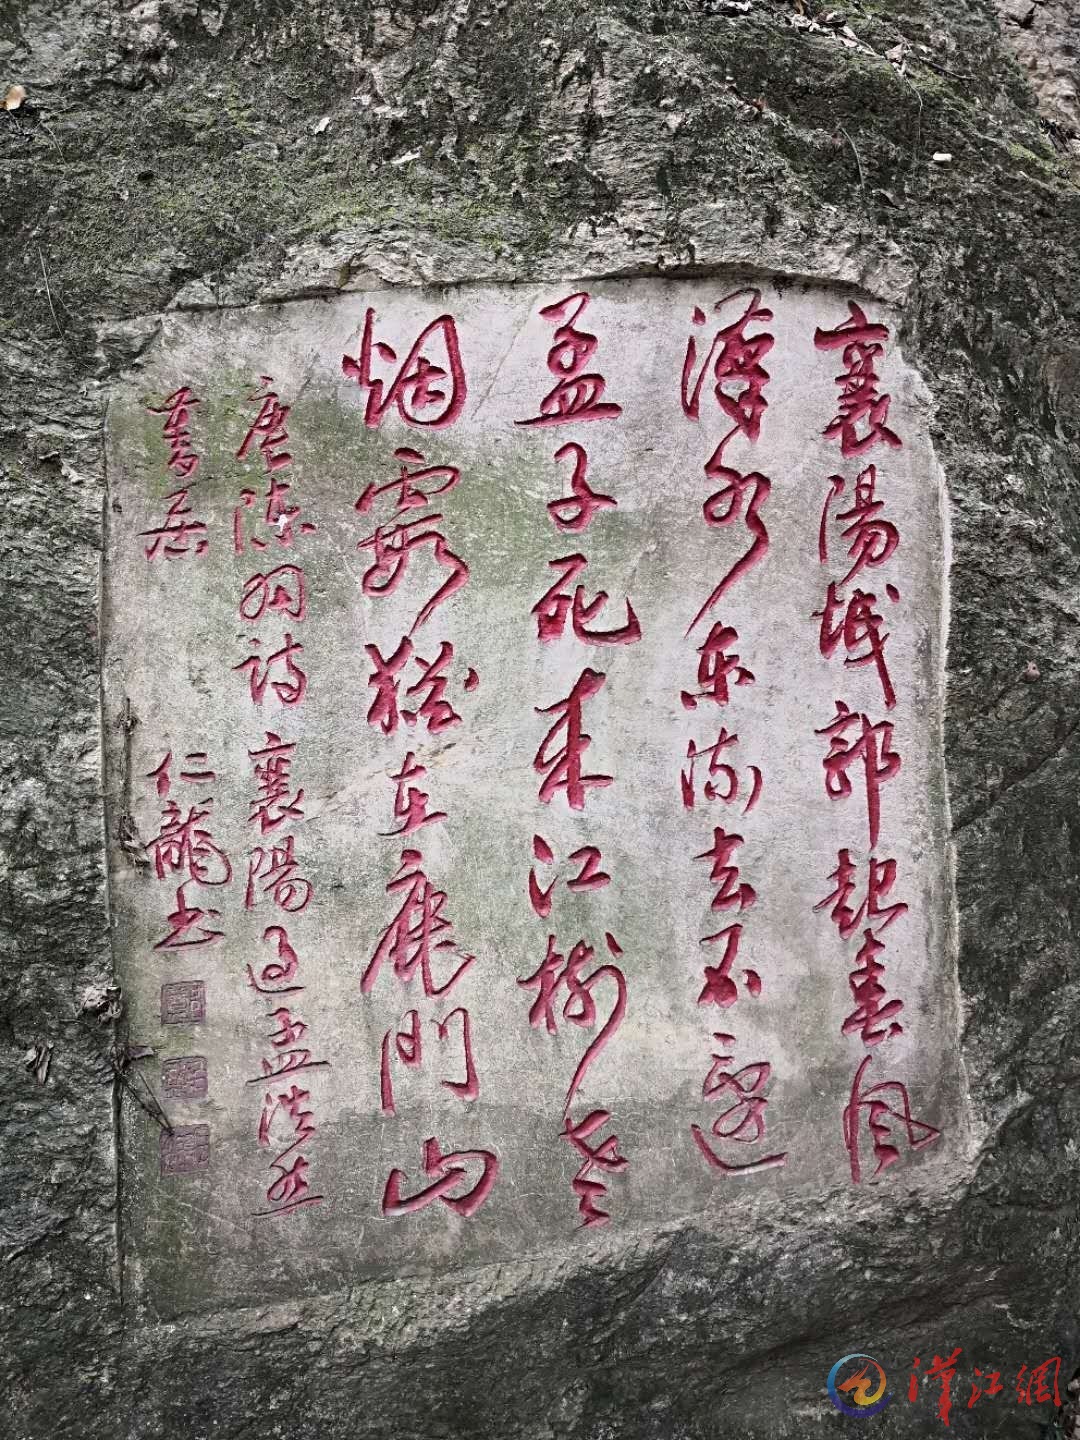 襄陽城郭起春風
漢水東流去不還
孟子死来江樹老
烟霞猶在鹿門山
唐陳羽詩襄陽過孟浩然
舊居 仁龍書
漢江網